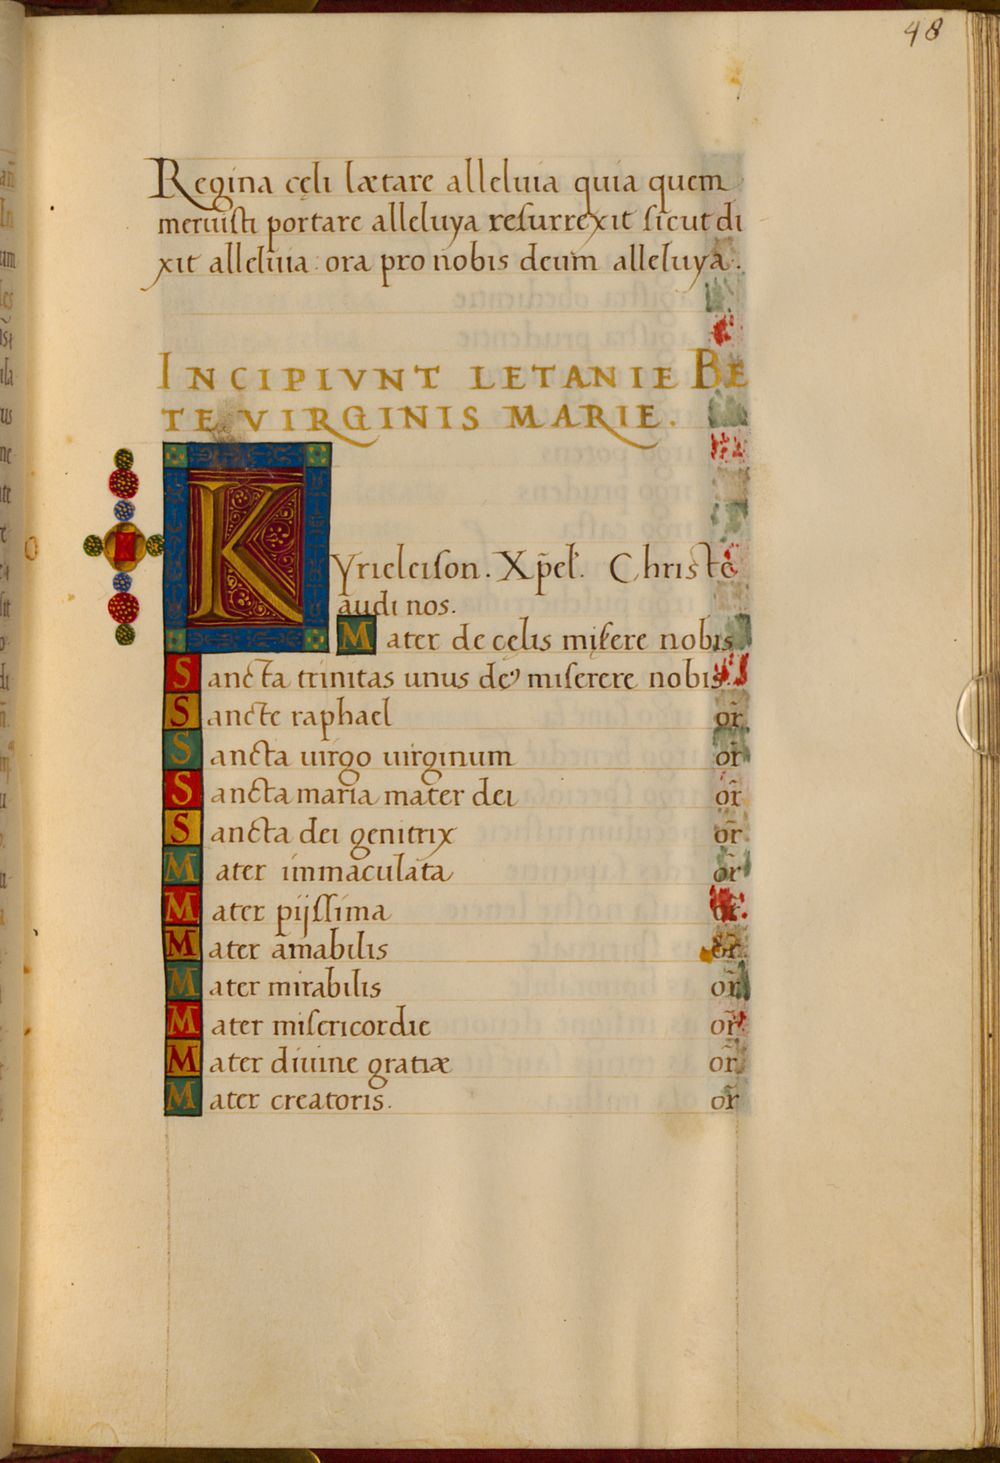 48
Regina cęli lætare alleluia quia quem
meruisti portare alleluya resurrexit sicut di
xit alleluia ora pro nobis deum alleluya.
INCIPIVNT LETANIE BE
TE VIRGINIS MARIE.
KYrieleison. Xp̄el'. Christe
audi nos.
Mater de cęlis misere nobis
Sancta trinitas unus deꝰ miserere nobis.
Sancte raphael or̄
Sancta uirgo uirginum or̄
Sancta maria mater dei or̄
Sancta dei genitrix or̄
Mater immaculata or̄
Mater pijssima or̄
Mater amabilis or̄
Mater mirabilis or̄
Mater misericordie or̄
Mater diuine gratiæ or̄
Mater creatoris. or̄